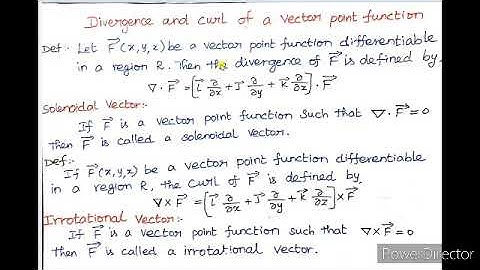 Divergence and curl of a vector point function
Def:- Let F⃗(x,y,z) be a vector point function differentiable
in a region R. Then the divergence of F⃗ is defined by
∇ · F⃗ = [i⃗ ∂/∂x + j⃗ ∂/∂y + k⃗ ∂/∂z] · F⃗
Solenoidal Vector:-
If F⃗ is a vector point function such that ∇ · F⃗ = 0
Then F⃗ is called a solenoidal vector.
Def:-
If F⃗(x,y,z) be a vector point function differentiable
in a region R, the curl of F⃗ is defined by
∇×F⃗ = [i⃗ ∂/∂x + j⃗ ∂/∂y + k⃗ ∂/∂z] × F⃗
Irrotational Vector:-
If F⃗ is a vector point function such that ∇×F⃗ = 0
then F⃗ is called a irrotational vector.
PowerDirector